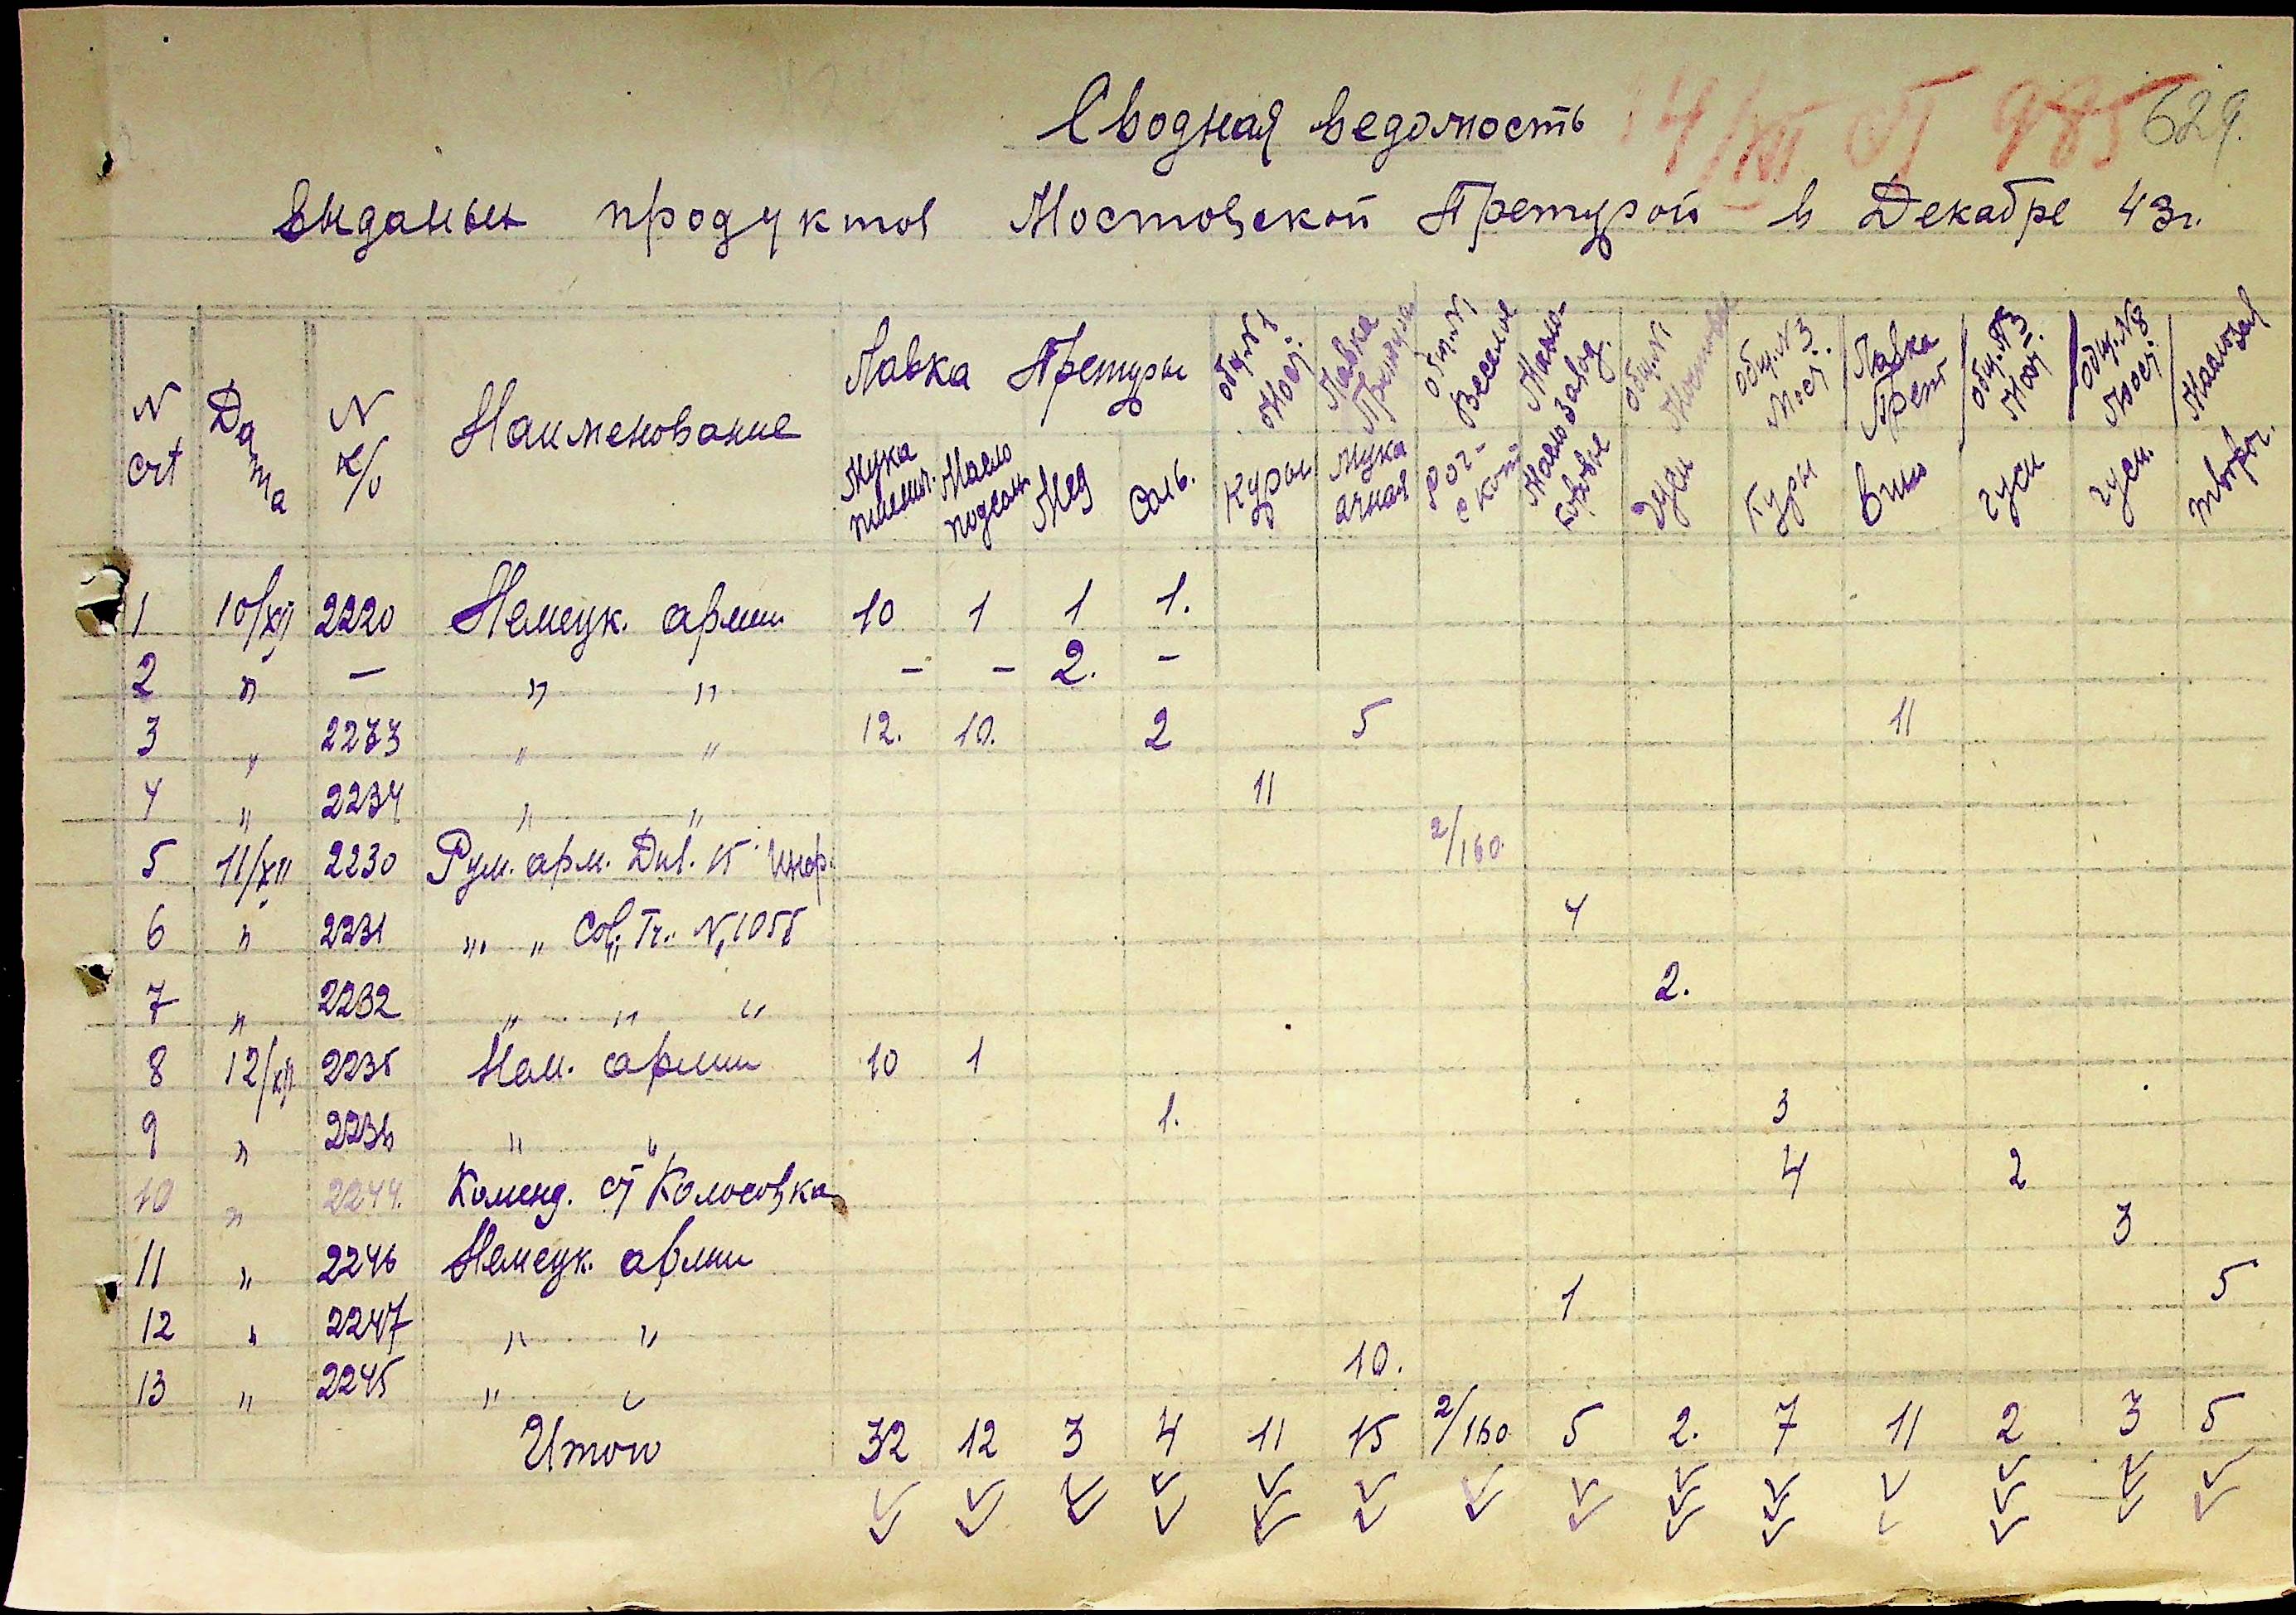 Сводная ведомость 14/XII 985 629.
выданых продуктов Мостовской Претурой в Декабре 43г.
N Crt Дата N Наименование Лавка Претуры
Мука пшенич. Масло подсолн. Мед Соль.
общ. N1 Мост. Куры
Лавка Претуры Мука ячная
общ. N1 Веселое Рог-скот
Масло-завод. Масло коровье
общ. N1 Мостовое гуси
общ. N3 Мост. Куры
Лавка Прет вино
общ. N3 Мост. гуси
общ. N8 Мост. гуси.
Маслозав творог.
1 10/XII 2220 Немецк. армии 10 1 1 1.
2 " — " " - - 2. -
3 " 2233 " " 12. 10. 2 5 11
4 " 2234 " " 11
5 11/XII 2230 Рум. арм. Div. 15 Инф. 2/160.
6 " 2231 " " Col. Tr. N 1055 4
7 " 2232 " " " 2.
8 12/XII 2235 Нем. армии 10 1
9 " 2236 " " 1. 3
10 " 2244. Коменд. ст Колосовка 4 2
11 " 2246 Немецк. армии 3
12 " 2247 " " 1 5
13 " 2245 " " 10.
Итого 32 12 3 4 11 15 2/160 5 2. 7 11 2 3 5